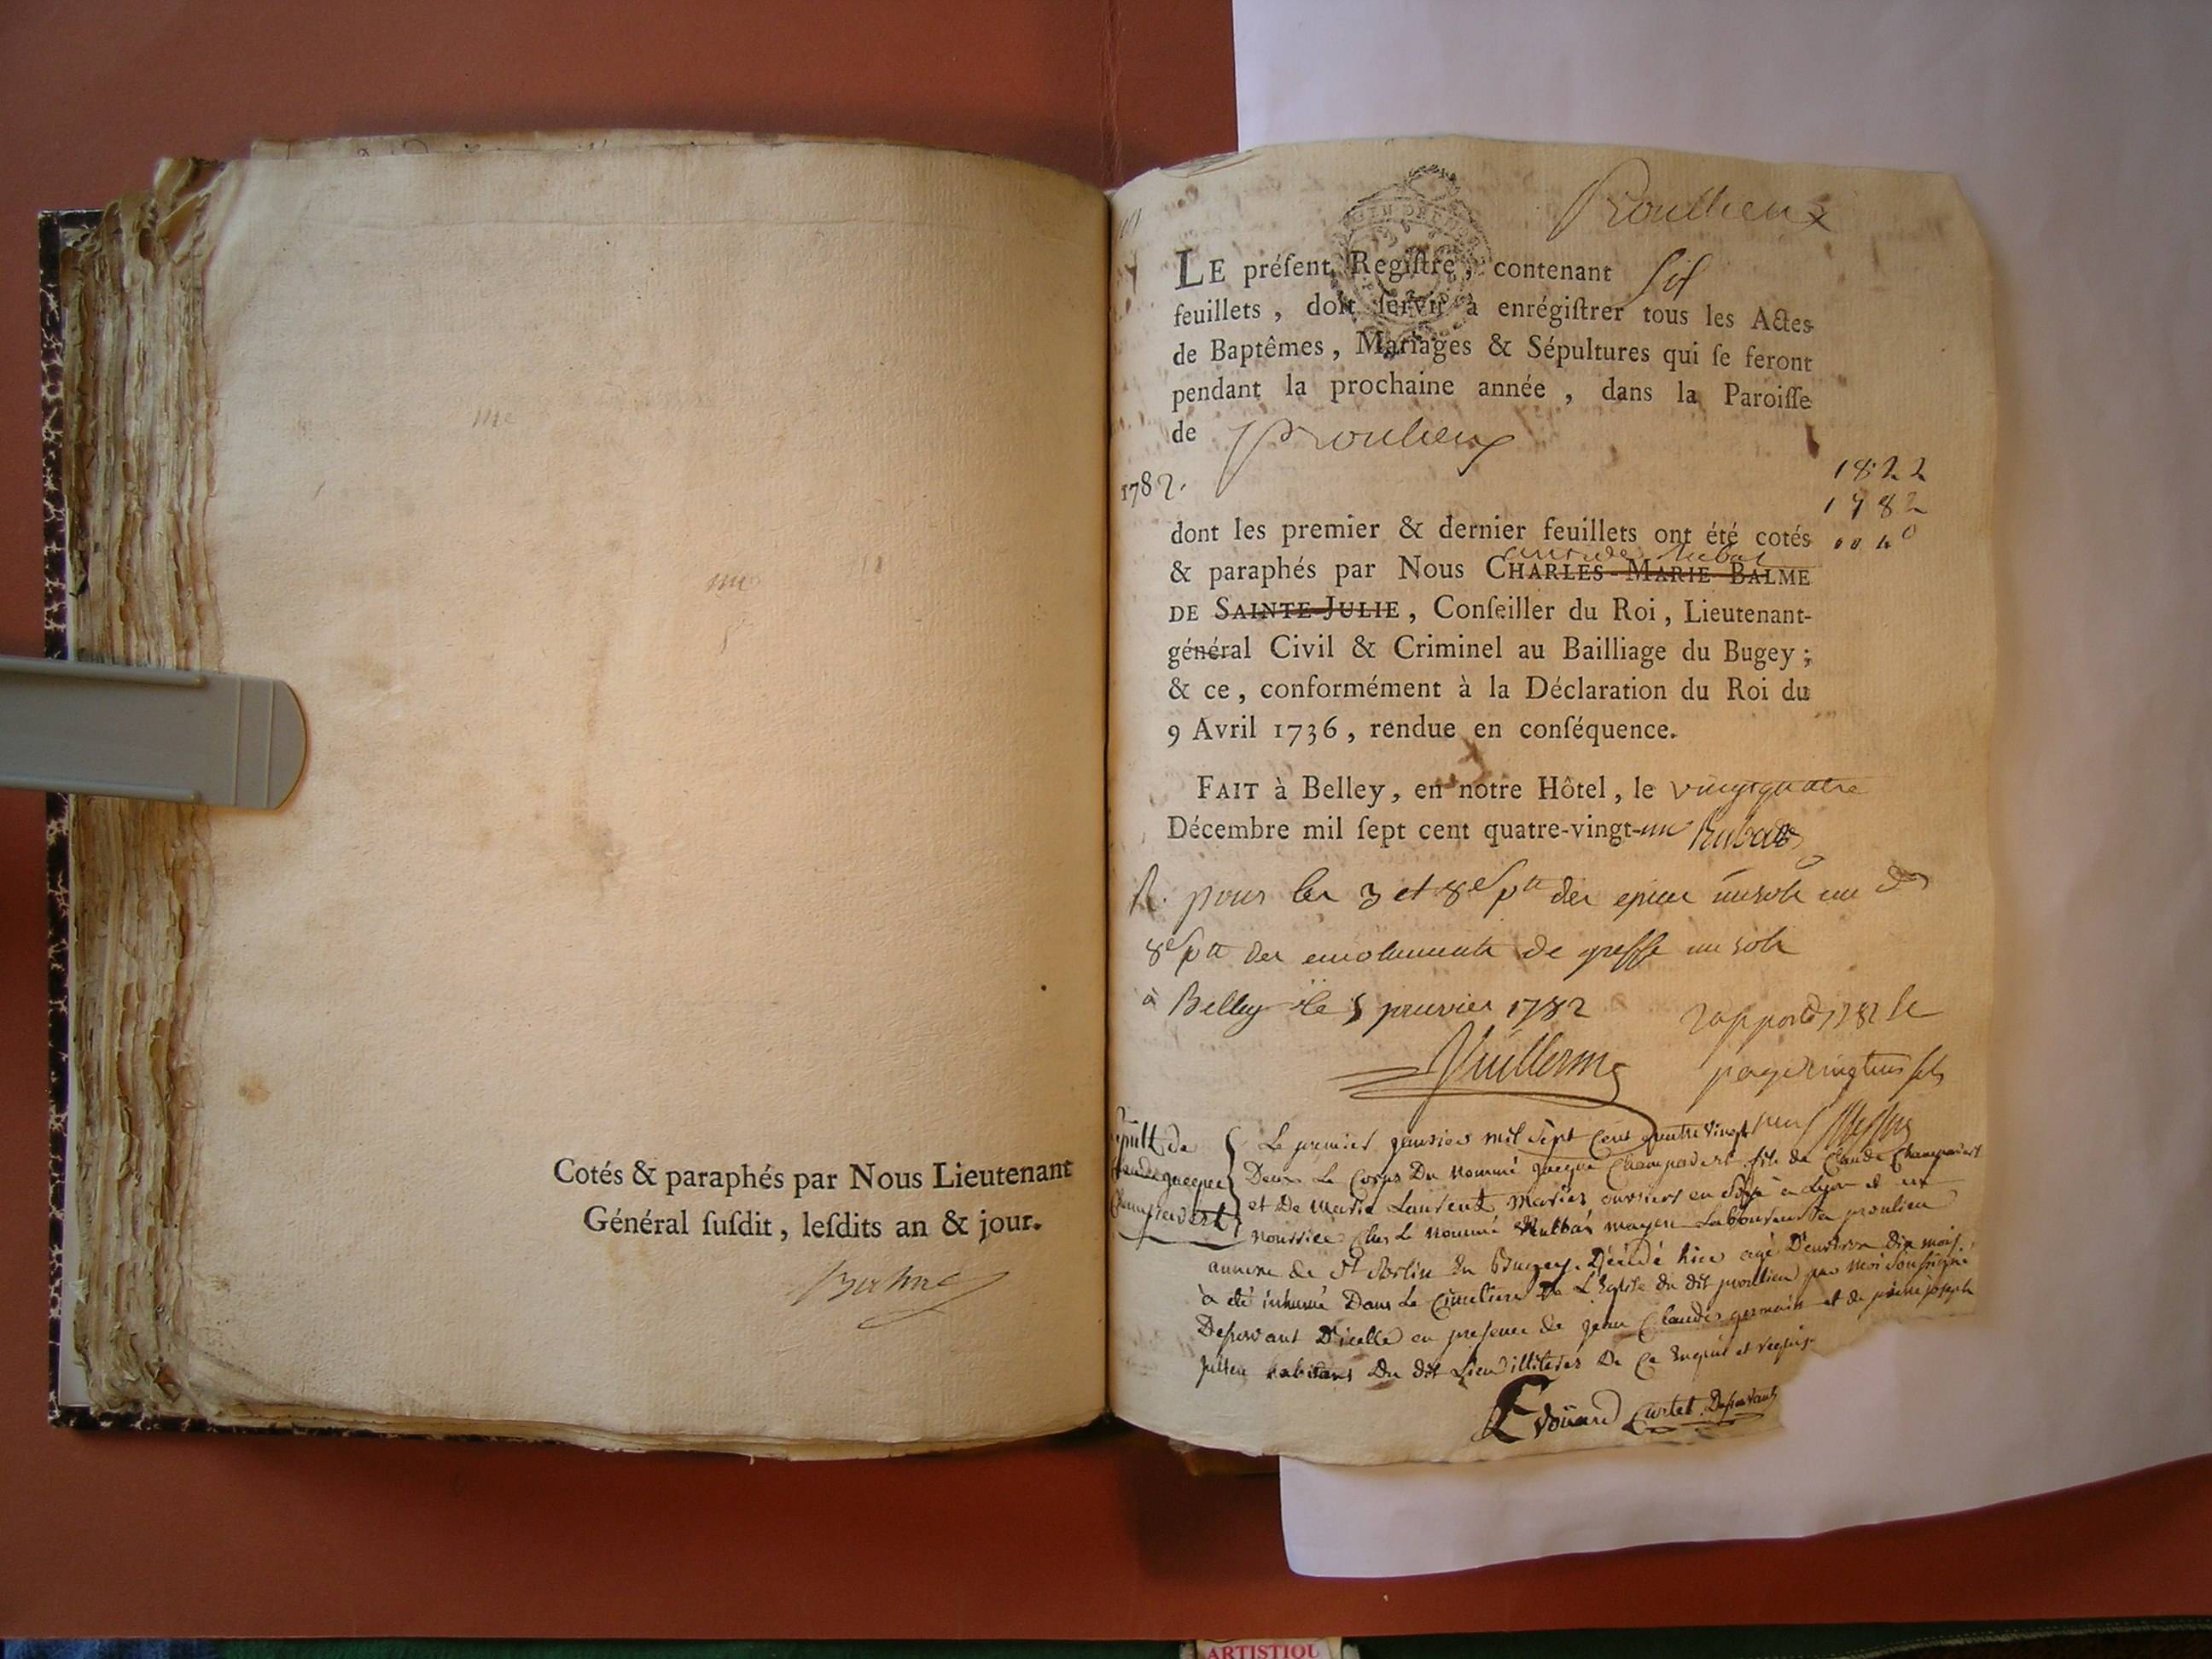 Cotés & paraphés par Nous Lieutenant
Général ſuſdit, leſdits an & jour.
Proulieux
LE préſent Regiſtre, contenant Six
feuillets, doit ſervir à enrégiſtrer tous les Actes
de Baptêmes, Mariages & Sépultures qui ſe feront
pendant la prochaine année, dans la Paroiſſe
de Proulieux
1782.
1822
1782
0040
dont les premier & dernier feuillets ont été cotés
& paraphés par Nous CHARLES-MARIE BALME
DE SAINTE-JULIE, Conſeiller du Roi, Lieutenant-
général Civil & Criminel au Bailliage du Bugey;
& ce, conformément à la Déclaration du Roi du
9 Avril 1736, rendue en conſéquence.
FAIT à Belley, en notre Hôtel, le vingtquatre
Décembre mil ſept cent quatre-vingt-un
R. pour les 3 et 8e des epices un sols un d
8e des emoluments de greffe un sols
à Belley le 5 janvier 1782
Vuillerme
Le premier janvier mil sept cent quatre vingt
Deux Le Corps Du nommé jacque Champavert fils de Claude Champavert
et De marie Laurent mariés ouvriers en soye à Lyon et en
nourrice chez Le nommé mayen Laboureur à proulieu
annexe de St Sorlin En Bugey. Décédé hier agé D'environ dix mois
à été inhumé Dans Le Cimetiere De L'Eglise du dit proulieu par moi soussigné
Deservant D'icelle en presence de jean Claude germain et de pierre joseph
julien habitans Du dit Lieu illiterés De Ce Enquis et requis.
Edoüard Curtet Deservant
ARTISTIQU